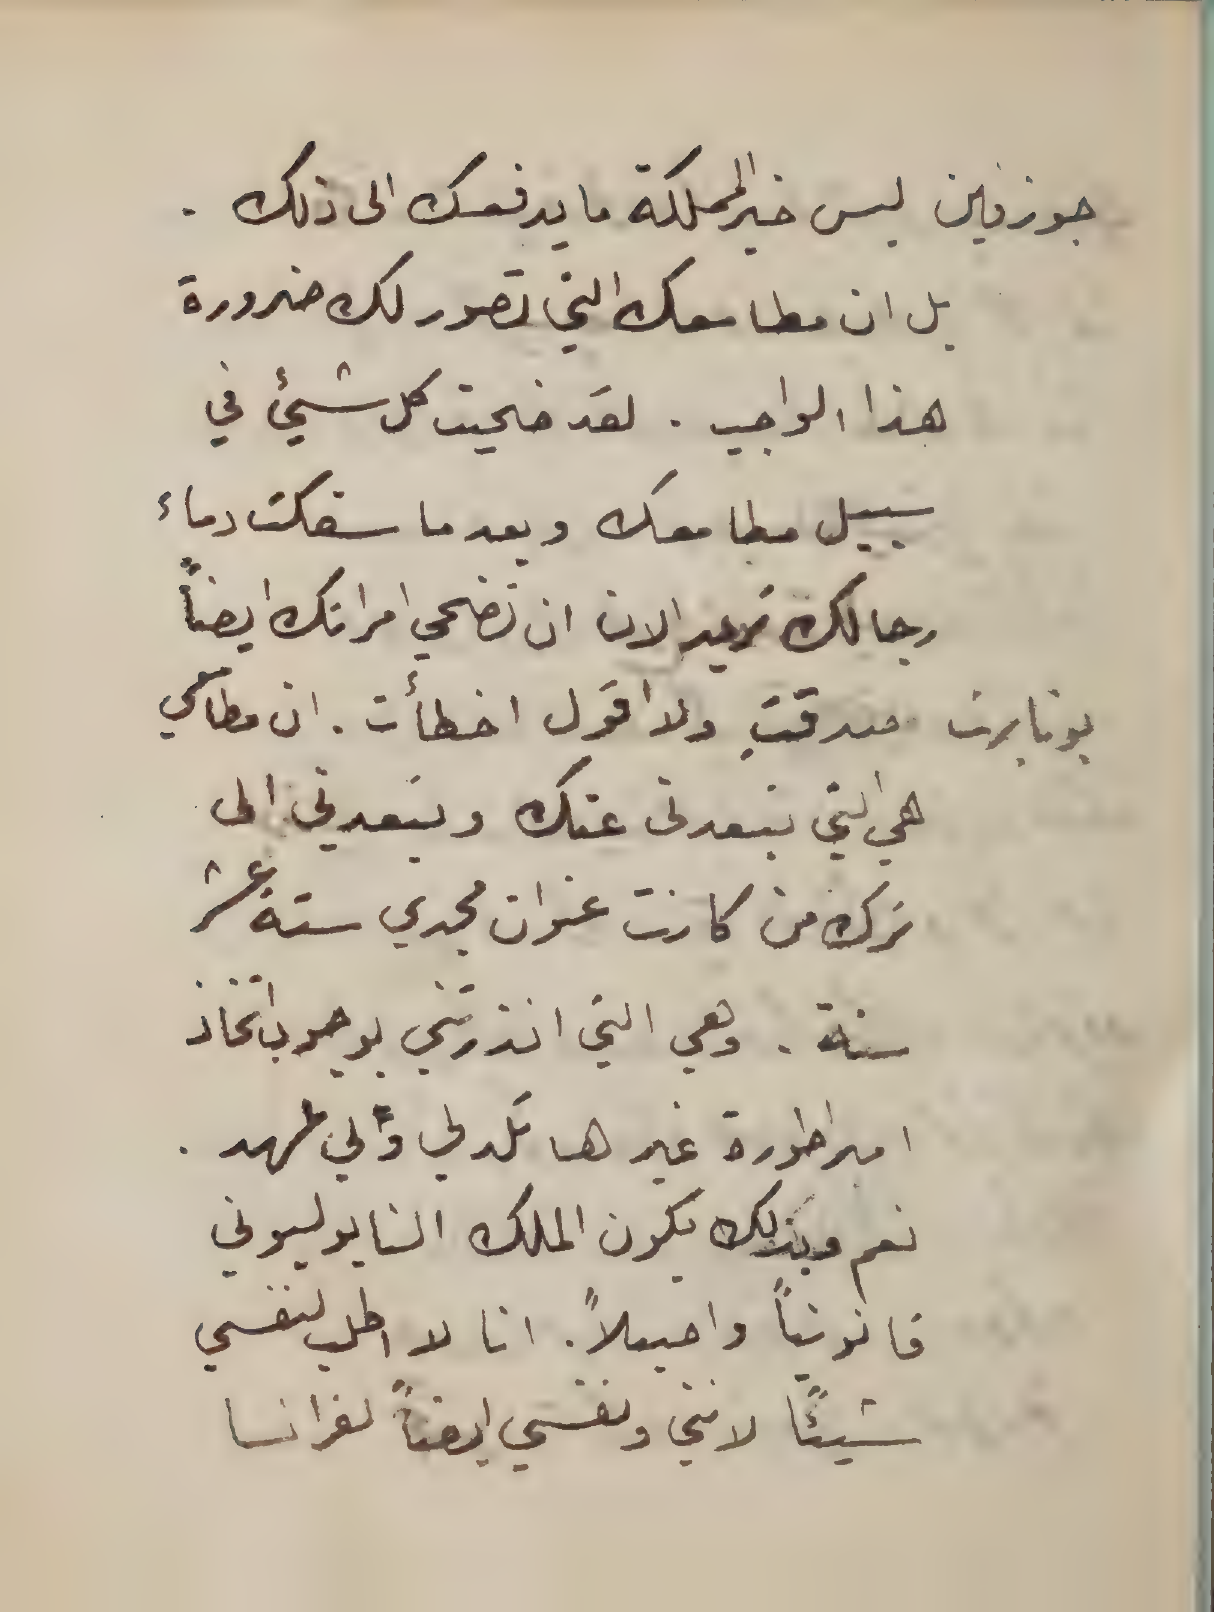 جوزفين ليس خير المملكة ما يدفعك الى ذلك .
بل ان مطامعك التي تصور لك ضرورة
هذا الواجب . لقد ضحيت كل شيئ في
سبيل مطامعك وبعد ما سفكت دماء
رجالك تريد الان ان تضحي امراتك ايضاً
بونابرت صدقتِ ولا اقول اخطأت . ان مطامعي
هي التي تبعدني عنك وتبعدني الى
ترك من كانت عنوان مجدي ستة عشر
سنة . وهي التي انذرتني بوجوب اتخاذ
امبراطورة غيرها تلد لي ولي عهد .
نعم وبذلك يكون الملك النابوليوني
قانونياً واصيلاً . انا لا اطلب لنفسي
شيئًا لانني ونفسي ايضاً لفرانسا